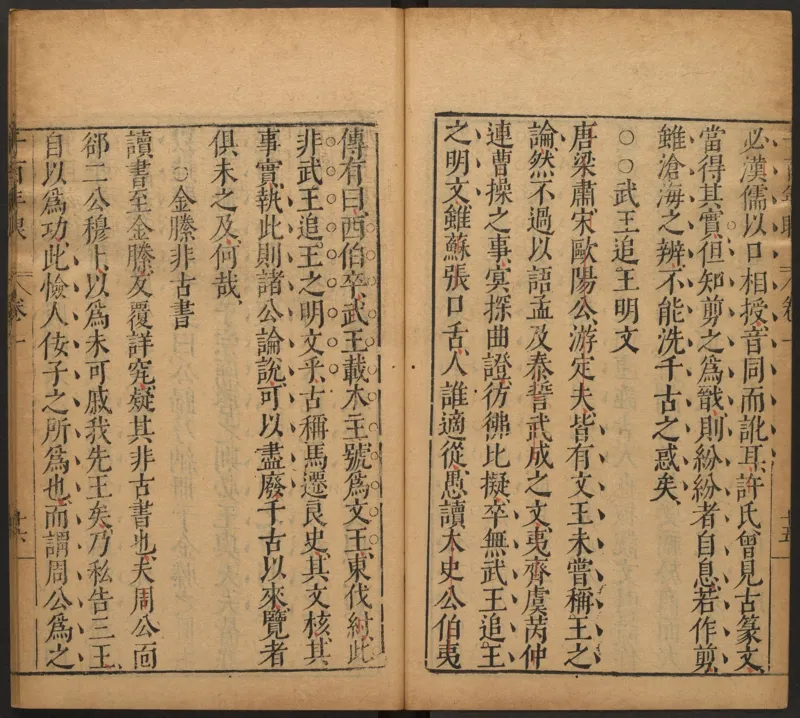 必漢儒以口相授音同而訛耳許氏曾見古篆文
當得其實但知剪之爲戬則紛紛者自息若作剪
雖滄海之辨不能洗千古之惑矣
○○武王追王明文
唐梁肅宋歐陽公游定夫皆有文王未嘗稱王之
論然不過以語孟及泰誓武成之文夷齊虞芮仲
連曹操之事㝠探曲證彷彿比擬卒無武王追王
之明文雖蘇張口舌人誰適從愚讀太史公伯夷
十五
傳有曰西伯卒武王載木主號爲文王東伐紂此
非武王追王之明文乎古稱馬遷良史其文核其
事實執此則諸公論說可以盡廢千古以來覽者
俱未之及何哉
○金縢非古書
讀書至金縢反覆詳究疑其非古書也夫周公面
郤二公穆卜以爲未可戚我先王矣乃私告三王
自以爲功此憸人佞子之所爲也而謂周公爲之
卷一
十六